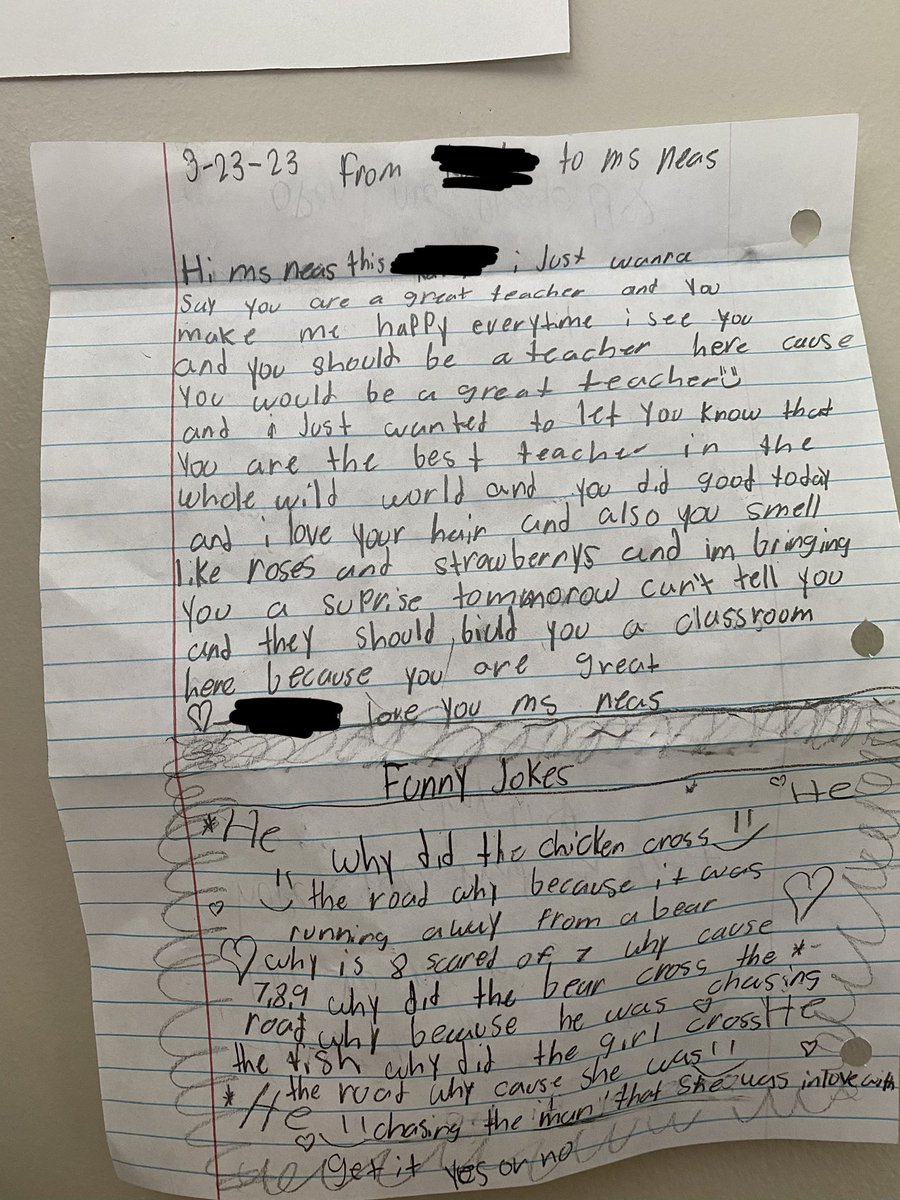 3-23-23 from to ms neas
Hi ms neas this i Just wanna
Say you are a great teacher and You
make me happy everytime i see you
and you should be a teacher here cause
You would be a great teacher
and i Just wanted to let You know that
You are the best teacher in the
whole wild world and you did good today
and i love your hair and also you smell
like roses and strawberrys and im bringing
You a suprise tommorow can't tell you
and they should biuld you a classroom
here because you are great
love you ms neas
Funny Jokes
*He He
why did the chicken cross
the road why because it was
running away from a bear
why is 8 scared of 7 why cause
7,8,9 why did the bear cross the *
road why because he was chasing
the fish why did the girl cross He
the road why cause she was
*He chasing the man that she was in love with
get it yes or no